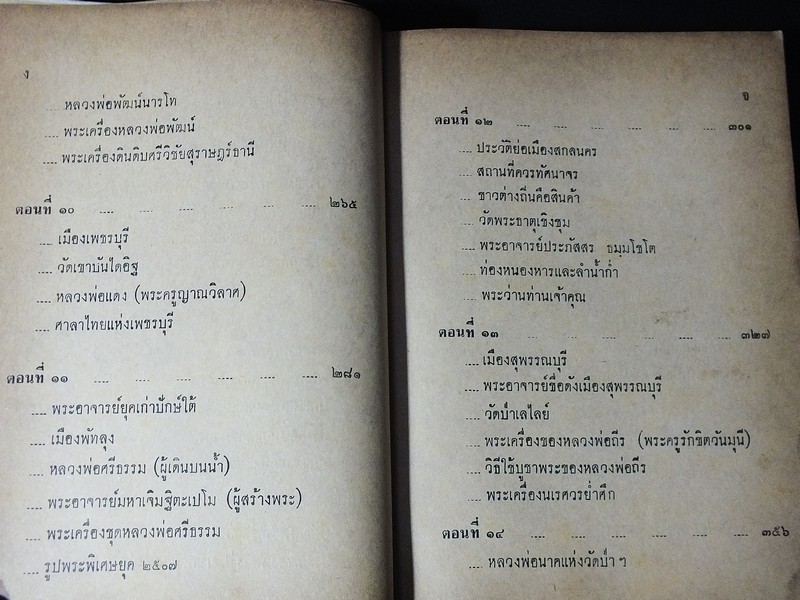 ง
.... หลวงพ่อพัฒน์นารโท
.... พระเครื่องหลวงพ่อพัฒน์
.... พระเครื่องดินดิบศรีวิชัยสุราษฎร์ธานี
ตอนที่ ๑๐ .... .... .... .... .... .... ๒๖๕
.... เมืองเพชรบุรี
.... วัดเขาบันไดอิฐ
.... หลวงพ่อแดง (พระครูญาณวิลาศ)
.... ศาลาไทยแห่งเพชรบุรี
ตอนที่ ๑๑ .... .... .... .... .... .... ๒๘๑
.... พระอาจารย์ยุคเก่าปักษ์ใต้
.... เมืองพัทลุง
.... หลวงพ่อศรีธรรม (ผู้เดินบนน้ำ)
.... พระอาจารย์มหาเจิมฐิตะเปโม (ผู้สร้างพระ)
.... พระเครื่องชุดหลวงพ่อศรีธรรม
.... รูปพระพิเศษยุค ๒๕๐๗
จ
ตอนที่ ๑๒ .... .... .... .... .... ๓๐๑
.... ประวัติย่อเมืองสกลนคร
.... สถานที่ควรทัศนาจร
.... ชาวต่างถิ่นคือสินค้า
.... วัดพระธาตุเชิงชุม
.... พระอาจารย์ประภัสสร ธมฺมโชโต
.... ท่องหนองหารและลำน้ำก่ำ
.... พระว่านท่านเจ้าคุณ
ตอนที่ ๑๓ .... .... .... .... .... ๓๒๗
.... เมืองสุพรรณบุรี
.... พระอาจารย์ชื่อดังเมืองสุพรรณบุรี
.... วัดป่าเลไลย์
.... พระเครื่องของหลวงพ่อถีร (พระครูรักขิตวันมุนี)
.... วิธีใช้บูชาพระของหลวงพ่อถีร
.... พระเครื่องนเรศวรย่ำศึก
ตอนที่ ๑๔ .... .... .... .... .... ๓๕๖
.... หลวงพ่อนาคแห่งวัดป่า ๆ